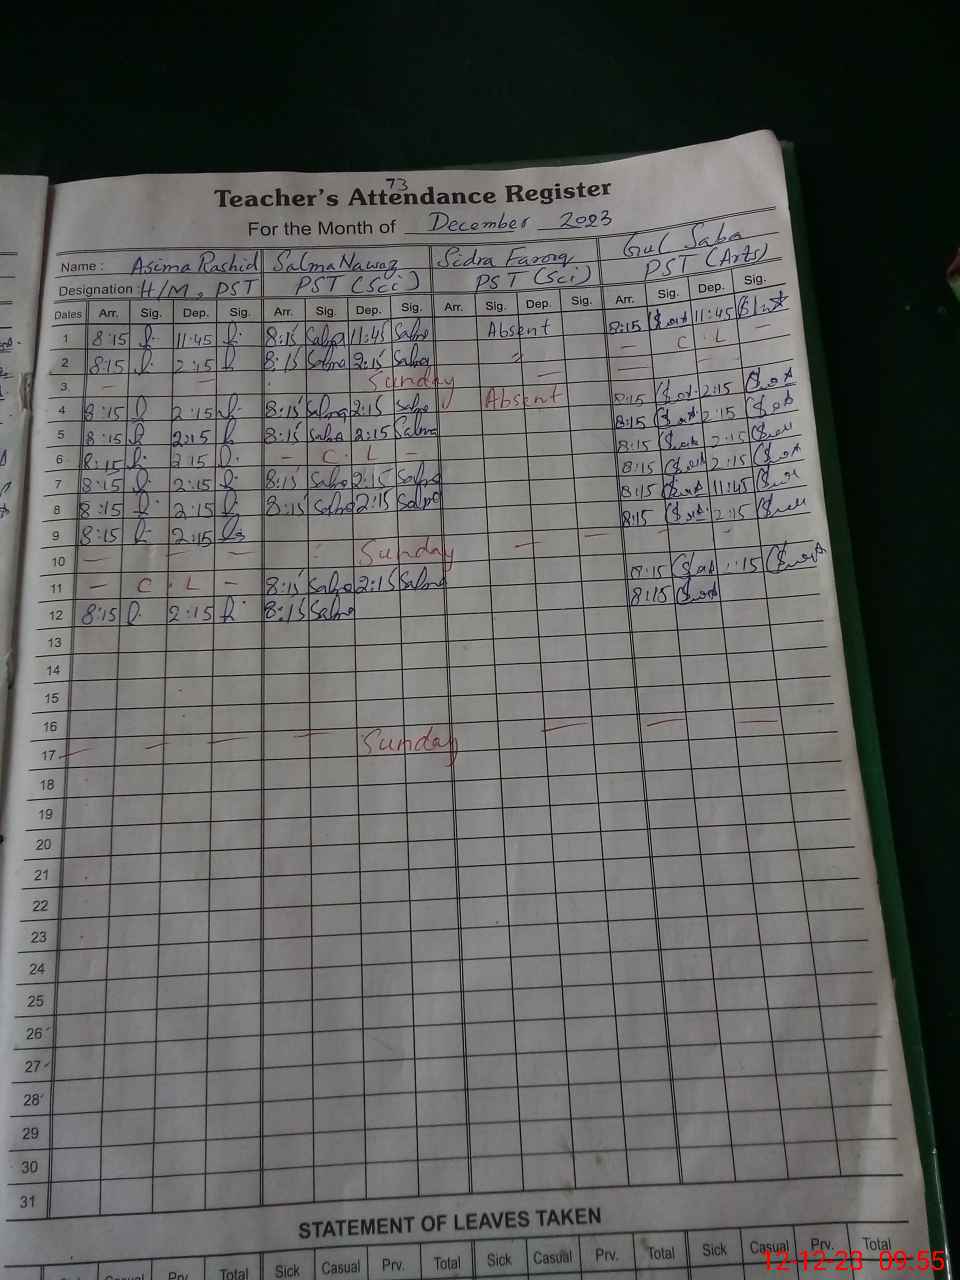 73
Teacher's Attendance Register
For the Month of December 2023
Name: Asima Rashid Salma Nawaz Sidra Farooq Gul Saba
Designation: H/M, PST PST (Sci) PST (Sci) PST (Arts)
Dates Arr. Sig. Dep. Sig. Arr. Sig. Dep. Sig. Arr. Sig. Dep. Sig. Arr. Sig. Dep. Sig.
1 8:15 11:45 8:15 Salma 11:45 Salma Absent 8:15 11:45
2 8:15 2:15 8:15 Salma 2:15 Salma " — C L —
3 — — Sunday — —
4 8:15 2:15 8:15 Salma 2:15 Salma Absent 8:15 2:15
5 8:15 2:15 8:15 Salma 2:15 Salma 8:15 2:15
6 8:15 2:15 — C L — 8:15 2:15
7 8:15 2:15 8:15 Salma 2:15 Salma 8:15 2:15
8 8:15 2:15 8:15 Salma 2:15 Salma 8:15 11:45
9 8:15 2:15 8:15 2:15
10 — — — Sunday — — — —
11 — C L — 8:15 Salma 2:15 Salma 8:15
12 8:15 2:15 8:15 Salma 8:15
13
14
15
16
17 — — — — Sunday — — —
18
19
20
21
22
23
24
25
26
27
28
29
30
31
STATEMENT OF LEAVES TAKEN
Casual Prv. Total Sick Casual Prv. Total Sick Casual Prv. Total Sick Casual Prv. Total
12-12-23 09:55